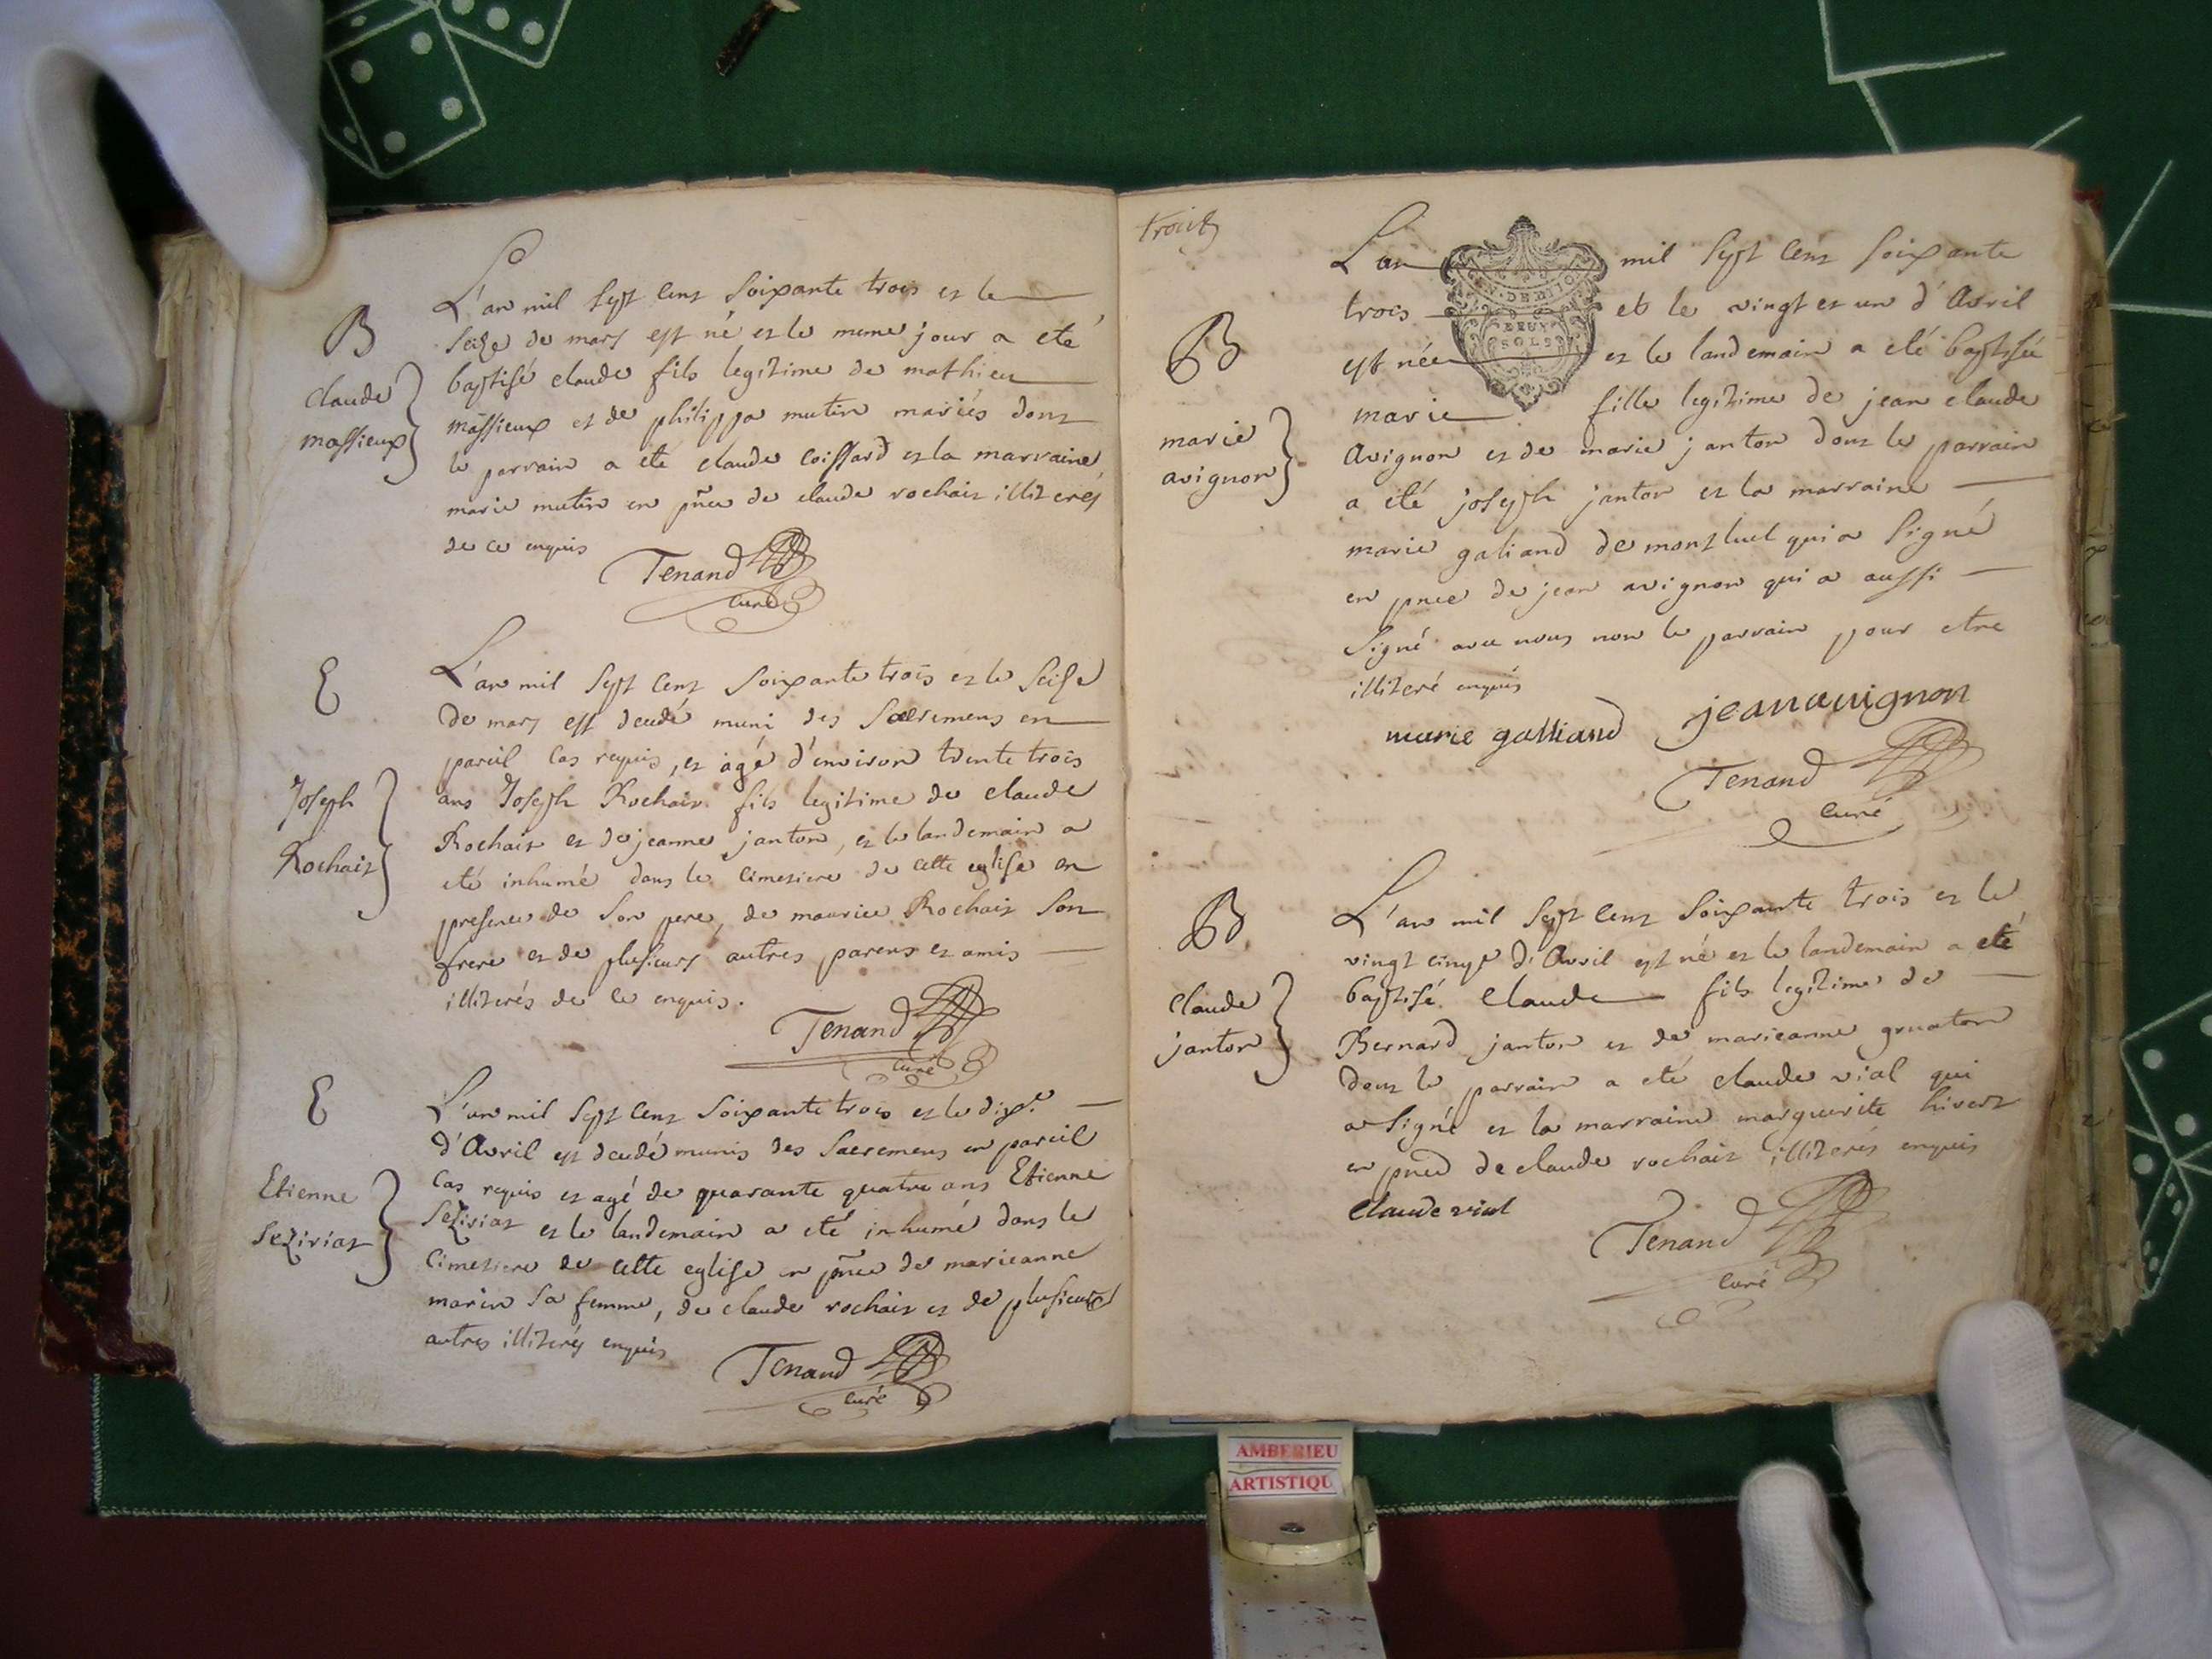 B
claude
massieux
L'an mil sept cent soixante trois et le
seize de mars est né et le meme jour a eté
baptisé claude fils legitime de mathieu
massieux et de philippa mutin mariés dont
le parrain a eté claude Coissard et la marraine
marie mutin en pñce de claude rochait illiterés
de ce enquis
Tenand
curé
E
Joseph
Rochait
L'an mil sept cent soixante trois et le seise
de mars est decedé muni des sacremens en
pareil cas requis, et agé d'environ trente trois
ans Joseph Rochait fils legitime de claude
Rochait et de jeanne janton, et le landemain a
eté inhumé dans le cimetiere de cette eglise en
presence de son pere, de maurice Rochait son
frere et de plusieurs autres parens et amis
illiterés de ce enquis.
Tenand
curé
E
Etienne
Seziriat
L'an mil sept cent soixante trois et le dix
d'Avril est decedé munis des sacremens en pareil
cas requis et agé de quarante quatre ans Etienne
Seziriat et le landemain a eté inhumé dans le
cimetiere de cette eglise en pñce de marieanne
marin sa femme, de claude rochait et de plusieurs
autres illiterés enquis
Tenand
curé
trois
B
marie
avignon
L'an mil sept cent soixante
GEN. DE DIJON
trois et le vingt et un d'Avril
DEUX
SOLS
est née et le landemain a eté baptisée
marie fille legitime de jean claude
Avignon et de marie janton dont le parrain
a eté joseph janton et la marraine
marie galiand de montluel qui a signé
en pnce de jean avignon qui a aussi
signé avec nous non le parrain pour etre
illiteré enquis
marie galliand jean auignon
Tenand
curé
B
claude
janton
L'an mil sept cent soixante trois et le
vingt cinq d'Avril est né et le landemain a eté
baptisé Claude fils legitime de
Bernard janton et de marieanne gruaton
dont le parrain a eté claude vial qui
a signé et la marraine marguerite hivert
en pnce de claude rochait illiterés enquis
Claude vial
Tenand
curé
AMBERIEU
ARTISTIQU